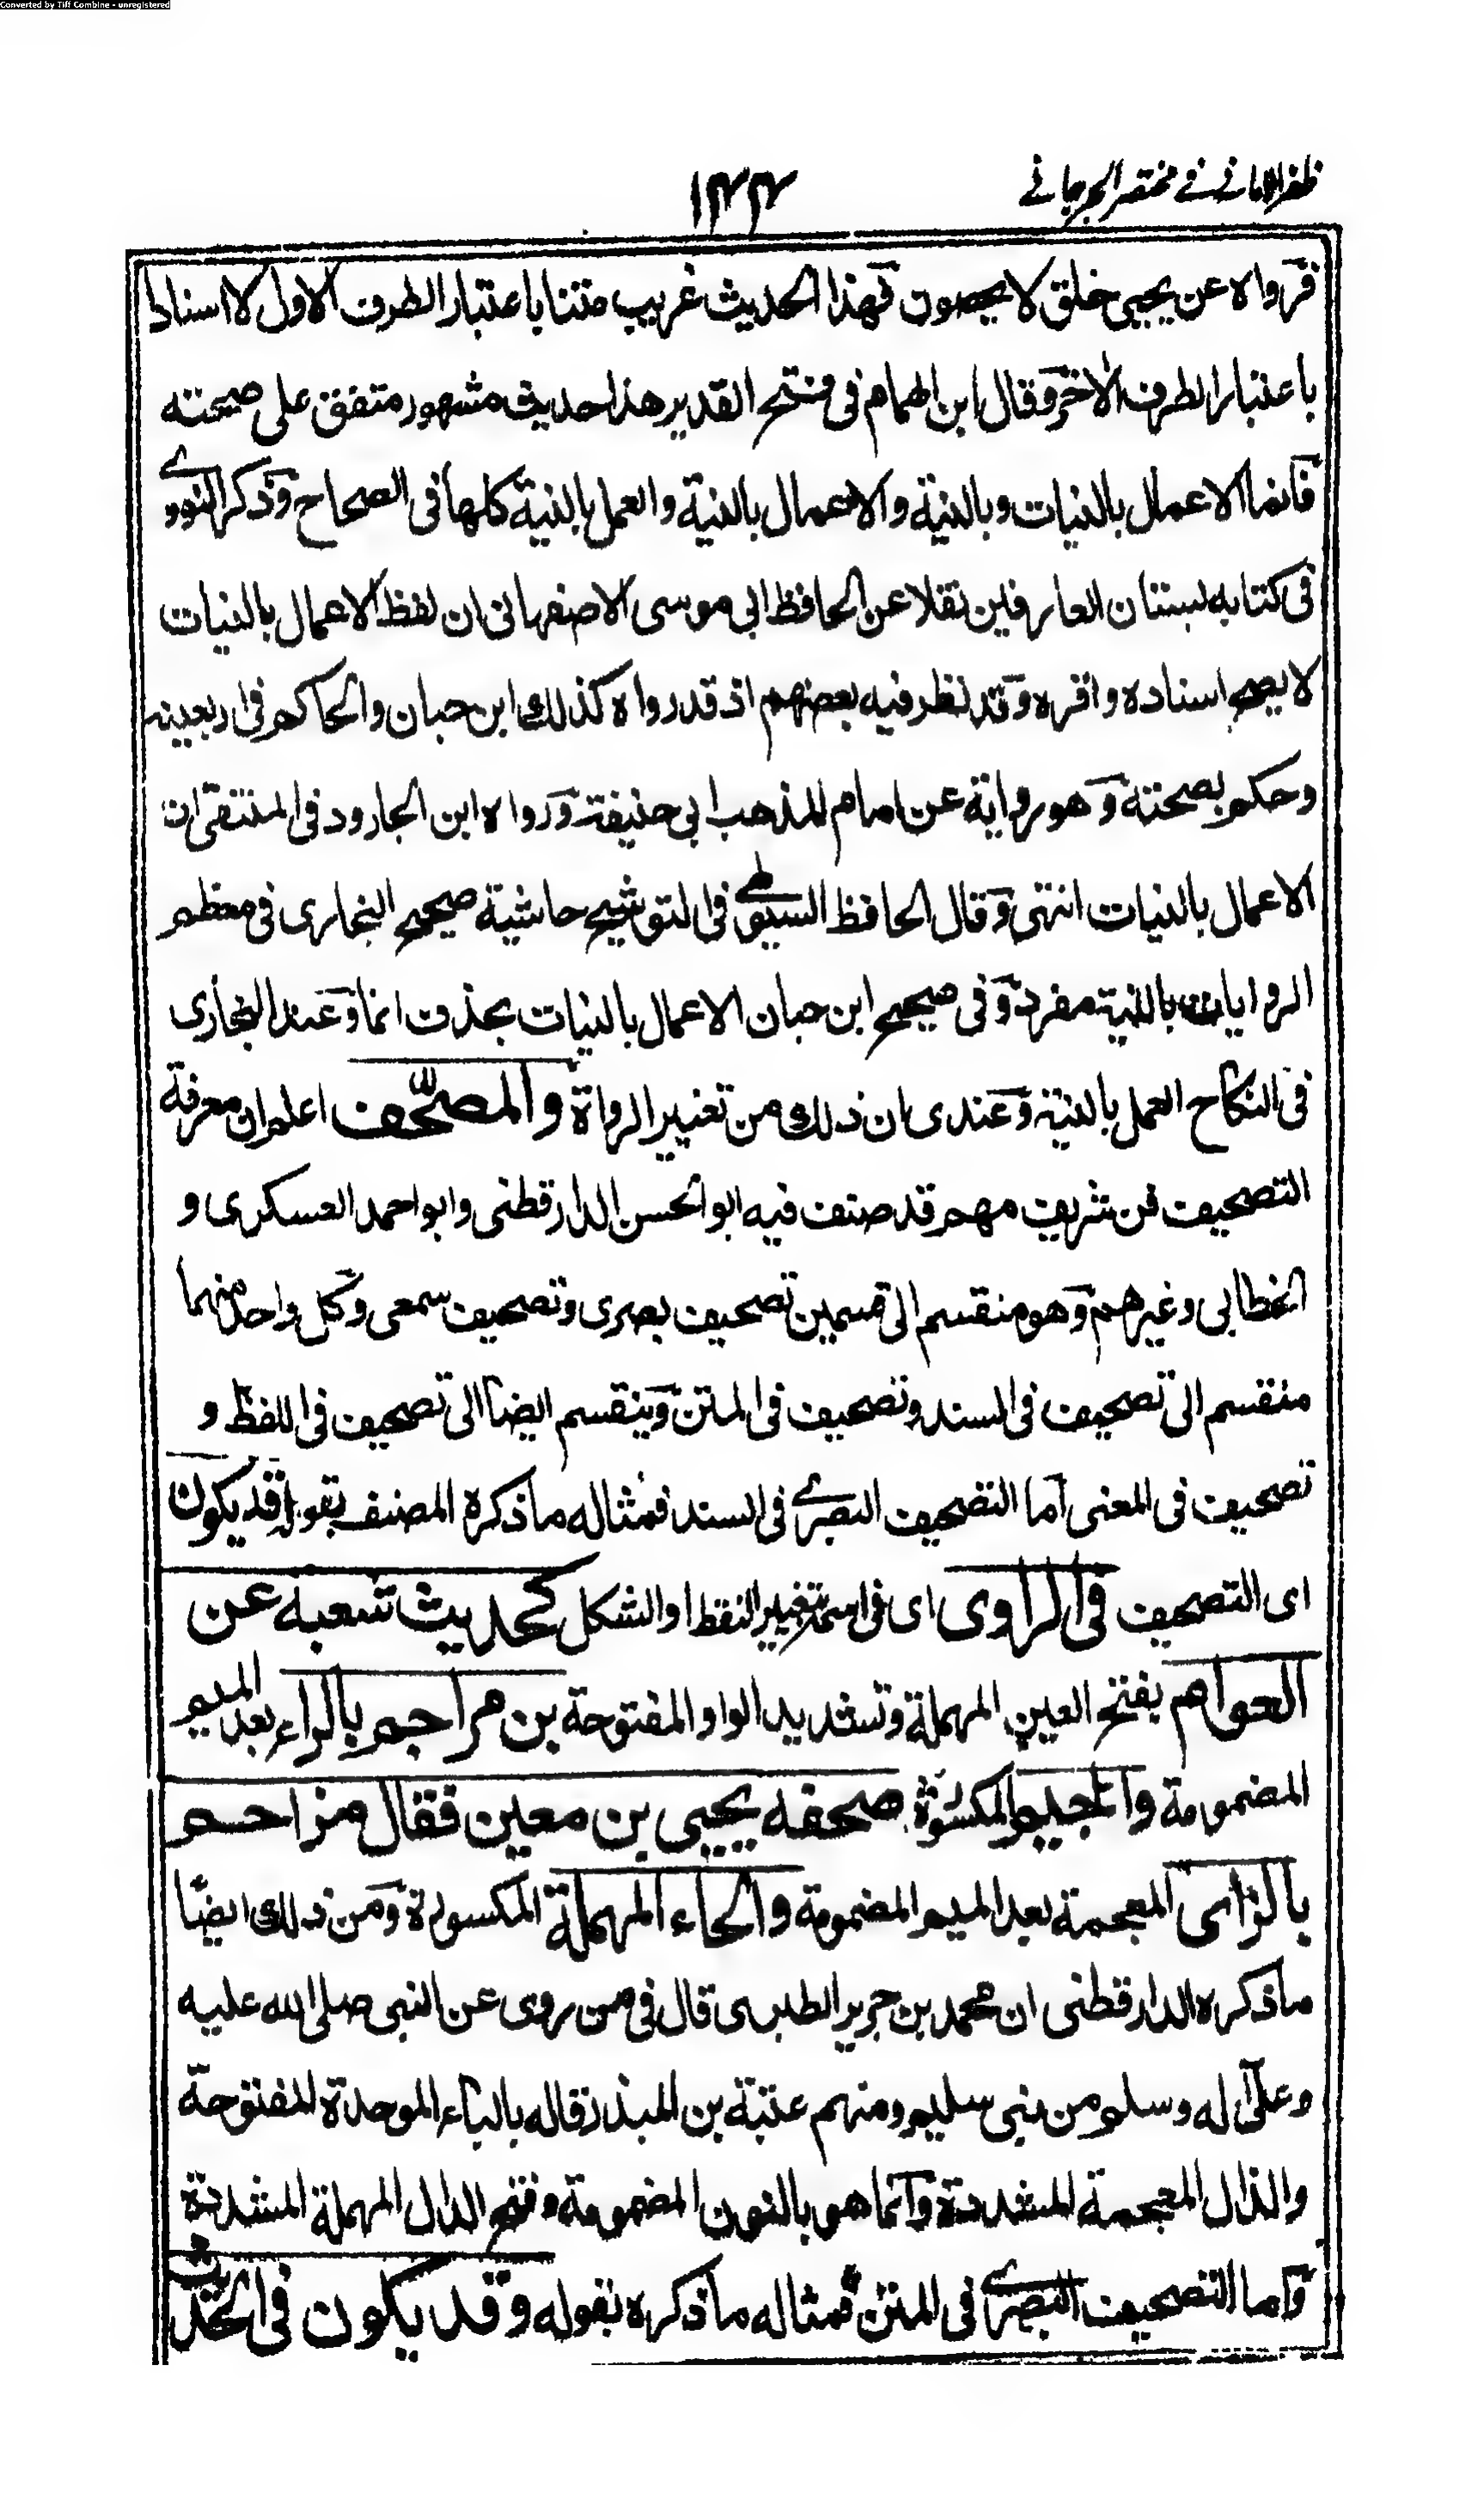 Converted by Tiff Combine - unregistered
ظفر الاماني في مختصر الجرجاني
١٣٣
فرواه عن يحيى خلق لا يحصون فهذا الحديث غريب متنا باعتبار الطرف الاول لا اسنادا
باعتبار الطرف الاخر وقال ابن الهمام فى فتح القدير هذا حديث مشهور متفق على صحته
فانما الاعمال بالنيات وبالنية والاعمال بالنية والعمل بالنية كلها فى الصحاح وذكر النووي
فى كتابه بستان العارفين نقلا عن الحافظ ابي موسى الاصفهانى ان لفظ الاعمال بالنيات
لا يصح اسناده واقره وقد نظر فيه بعضهم اذ قد رواه كذلك ابن حبان والحاكم فى اربعينه
وحكم بصحته وهو رواية عن امام المذهب ابي حنيفة ورواه ابن الجارود فى المنتقى ان
الاعمال بالنيات انتهى وقال الحافظ السيوطي فى التوشيح حاشية صحيح البخارى فى معظم
الروايات بالنية مفردة وفى صحيح ابن حبان الاعمال بالنيات بحذف انما وعند البخارى
فى النكاح العمل بالنية وعندى ان ذلك من تغيير الرواة والمصحّف اعلم ان معرفة
التصحيف فن شريف مهم قد صنف فيه ابو الحسن الدارقطنى وابو احمد العسكرى و
الخطابى وغيرهم وهو منقسم الى قسمين تصحيف بصرى وتصحيف سمعى وكل واحد منهما
منقسم الى تصحيف فى السند وتصحيف فى المتن وينقسم ايضا الى تصحيف فى اللفظ و
تصحيف فى المعنى اما التصحيف البصرے فى السند فمثاله ما ذكره المصنف بقوله قد يكون
اى التصحيف فى الراوى اى فى اسمه بتغيير النقط او الشكل كحديث شعبة عن
العوام بفتح العين المهملة وتشديد الواو المفتوحة بن مراجم بالراء بعد الميم
المضمومة والجيم المكسورة صحفه يحيى بن معين فقال مزاحم
بالزاى المعجمة بعد الميم المضمومة والحاء المهملة المكسورة ومن ذلك ايضًا
ما ذكره الدارقطنى ان محمد بن جرير الطبرى قال فى من روى عن النبى صلى الله عليه
وعلى آله وسلم من بنى سليم ومنهم عتبة بن البذر قاله بالباء الموحدة المفتوحة
والذال المعجمة المشددة وانما هو بالنون المضمومة وفتح الدال المهملة المشددة
واما التصحيف البصرے فى المتن فمثاله ما ذكره بقوله وقد يكون فى الحديث